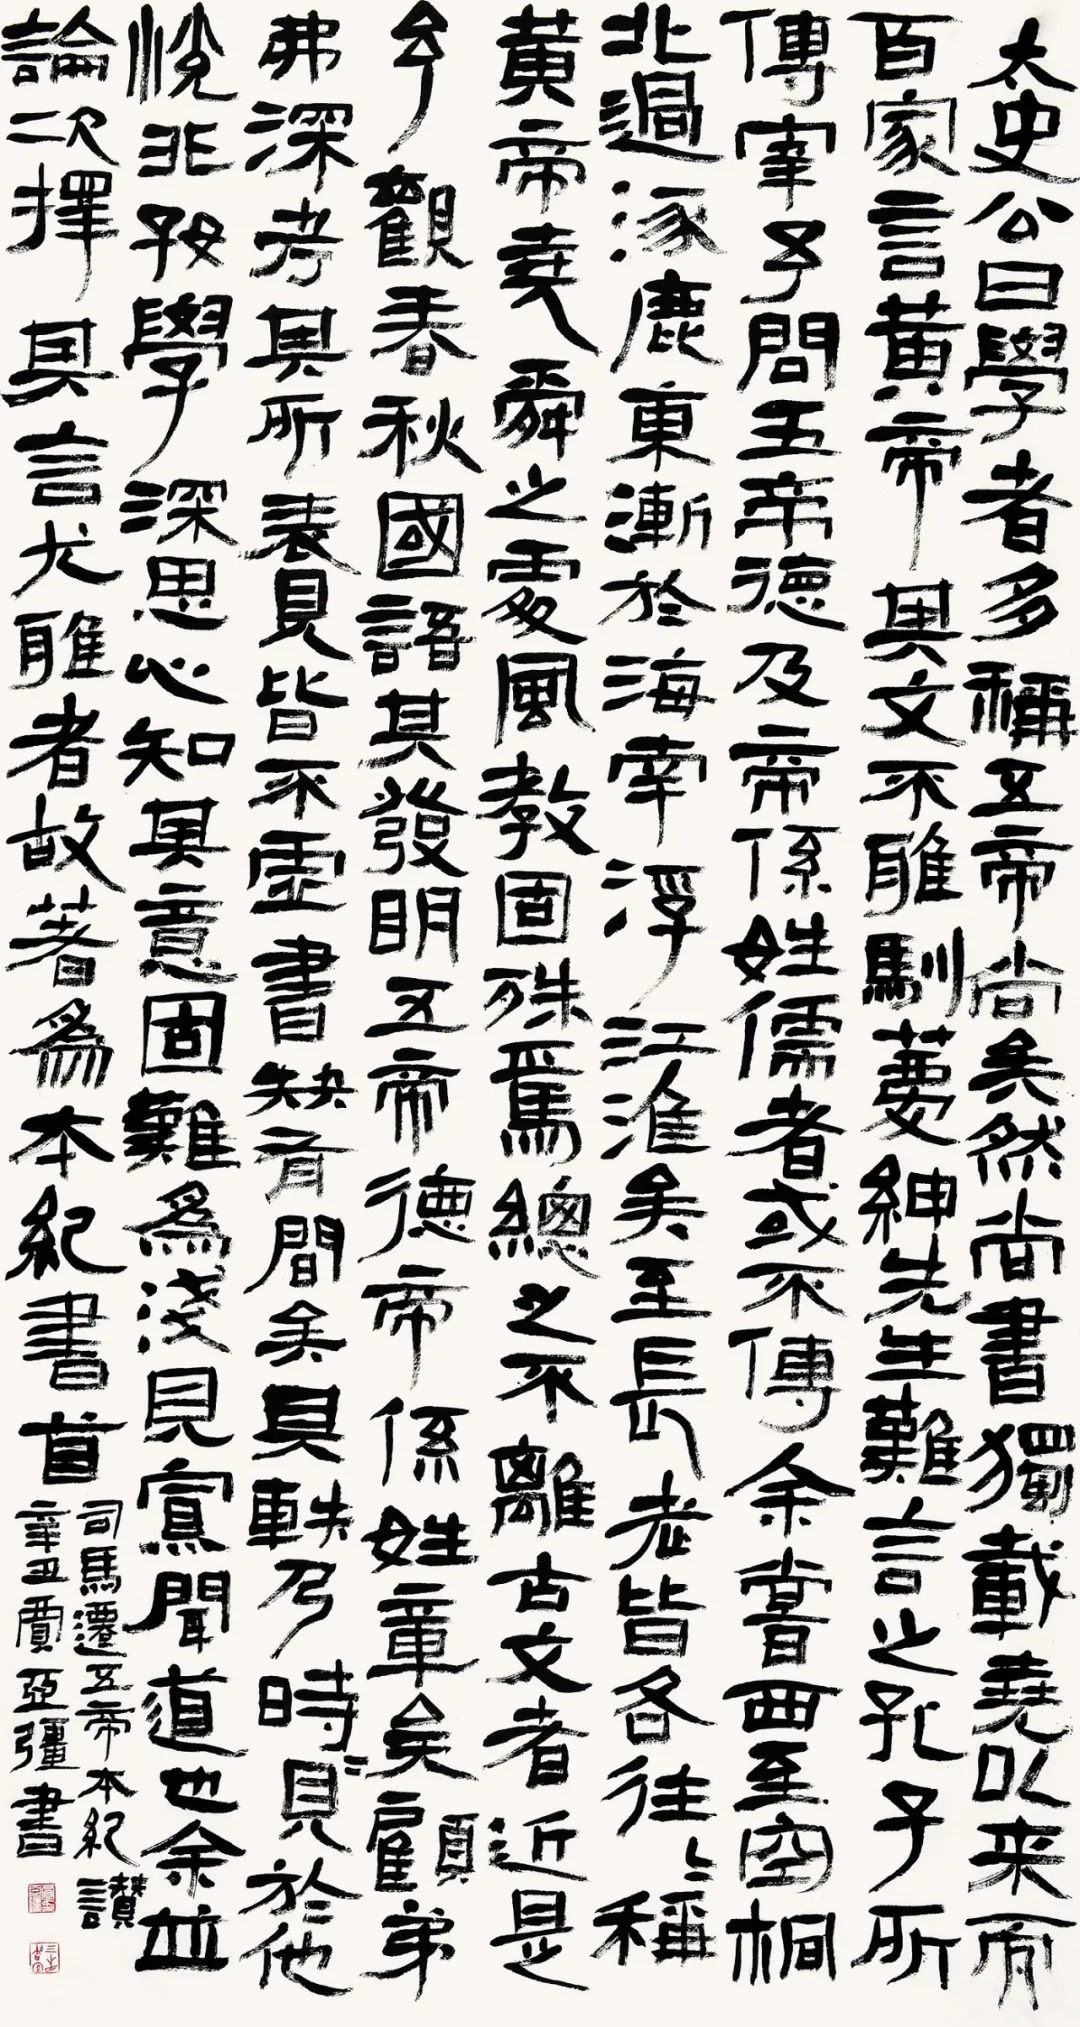 太史公曰學者多稱五帝尚矣然尚書獨載堯以来而
百家言黃帝其文不雅馴薦紳先生難言之孔子所
傳宰予問五帝德及帝係姓儒者或不傳余嘗西至空桐
北過涿鹿東漸於海南浮江淮矣至長老皆各往〻稱
黃帝堯舜之處風教固殊焉總之不離古文者近是
予觀春秋國語其發明五帝德帝係姓章矣顧弟
弗深考其所表見皆不虛書缺有間矣其軼乃時〻見於他
悅非好學深思心知其意固難為淺見寡聞道也余並
論次擇其言尤雅者故著為本紀書首
司馬遷五帝本紀讚
辛丑賈亞彊書